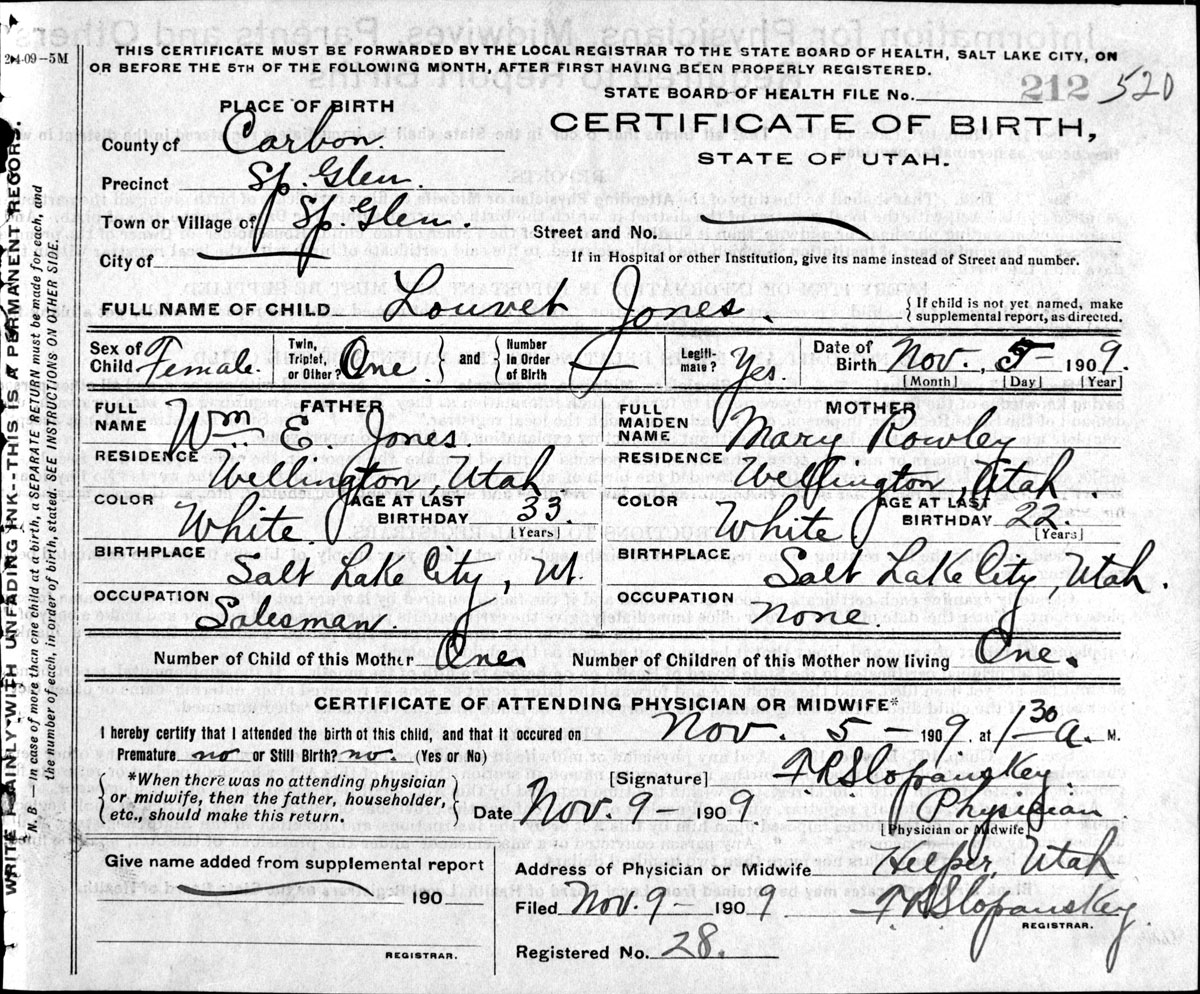 2-4-09-5M
THIS CERTIFICATE MUST BE FORWARDED BY THE LOCAL REGISTRAR TO THE STATE BOARD OF HEALTH, SALT LAKE CITY, ON
OR BEFORE THE 5TH OF THE FOLLOWING MONTH, AFTER FIRST HAVING BEEN PROPERLY REGISTERED.
STATE BOARD OF HEALTH FILE No. 212 520
PLACE OF BIRTH
CERTIFICATE OF BIRTH,
STATE OF UTAH.
County of Carbon.
Precinct Sp. Glen.
Town or Village of Sp. Glen.
Street and No.
City of
If in Hospital or other Institution, give its name instead of Street and number.
FULL NAME OF CHILD Louvet Jones. { If child is not yet named, make
supplemental report, as directed.
Sex of Child Female. Twin, Triplet, or Other? One } and { Number in Order of Birth Legiti- mate? Yes. Date of Birth Nov., 5 - 1909.
[Month] [Day] [Year]
FATHER
FULL NAME Wm E. Jones.
RESIDENCE Wellington, Utah
COLOR White. AGE AT LAST BIRTHDAY 33.
[Years]
BIRTHPLACE Salt Lake City, Ut.
OCCUPATION Salesman.
MOTHER
FULL MAIDEN NAME Mary Rowley
RESIDENCE Wellington, Utah.
COLOR White AGE AT LAST BIRTHDAY 22.
[Years]
BIRTHPLACE Salt Lake City, Utah.
OCCUPATION none.
Number of Child of this Mother One. Number of Children of this Mother now living One.
CERTIFICATE OF ATTENDING PHYSICIAN OR MIDWIFE*
I hereby certify that I attended the birth of this child, and that it occured on Nov. 5 - 1909 at 1 30 a. M.
Premature no or Still Birth? no. (Yes or No)
{ *When there was no attending physician
or midwife, then the father, householder,
etc., should make this return. }
[Signature]
Date Nov. 9 1909. Physician
[Physician or Midwife]
Give name added from supplemental report
190
REGISTRAR.
Address of Physician or Midwife Helper, Utah
Filed Nov. 9 - 1909
REGISTRAR.
Registered No. 28.
WRITE PLAINLY WITH UNFADING INK---THIS IS A PERMANENT RECORD.
N. B.—In case of more than one child at a birth, a SEPARATE RETURN must be made for each, and
the number of each, in order of birth, stated. SEE INSTRUCTIONS ON OTHER SIDE.